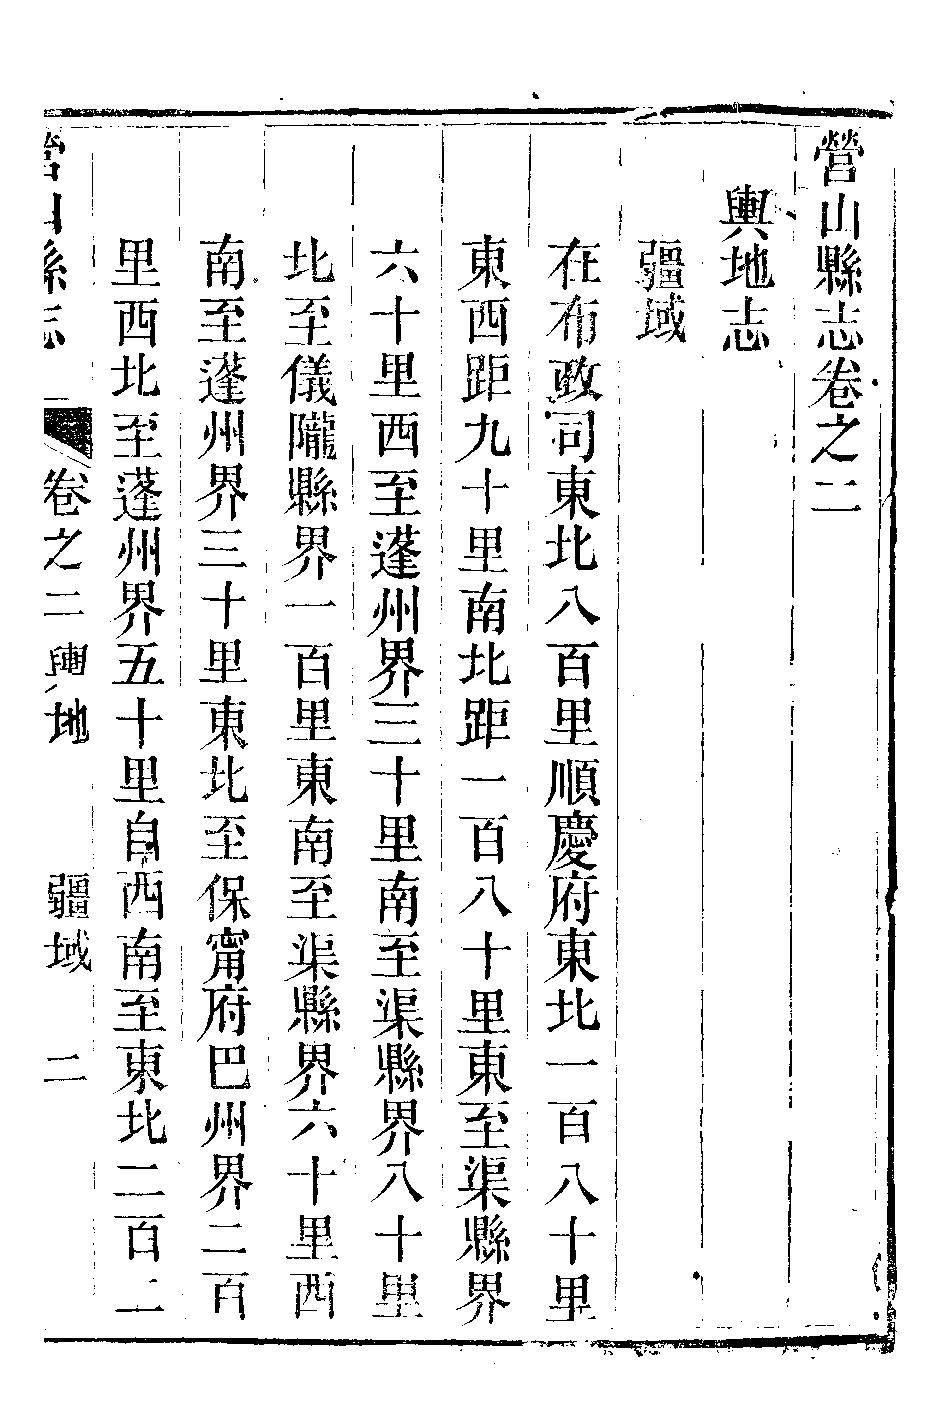 營山縣志卷之二
輿地志
疆域
在布政司東北八百里順慶府東北一百八十里
東西距九十里南北距一百八十里東至渠縣界
六十里西至蓬州界三十里南至渠縣界八十里
北至儀隴縣界一百里東南至渠縣界六十里西
南至蓬州界三十里東北至保甯府巴州界二百
里西北至蓬州界五十里自西南至東北二百二
營山縣志 卷之二輿地 疆域 二